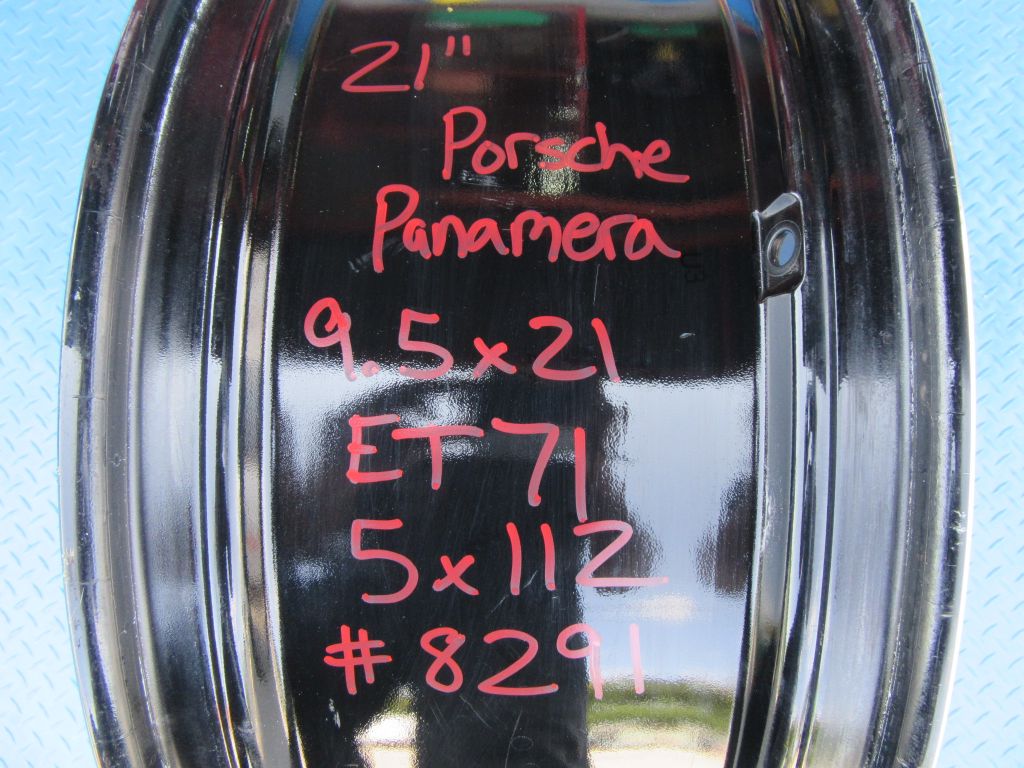 21"
Porsche
Panamera
9.5x21
ET71
5x112
#8291